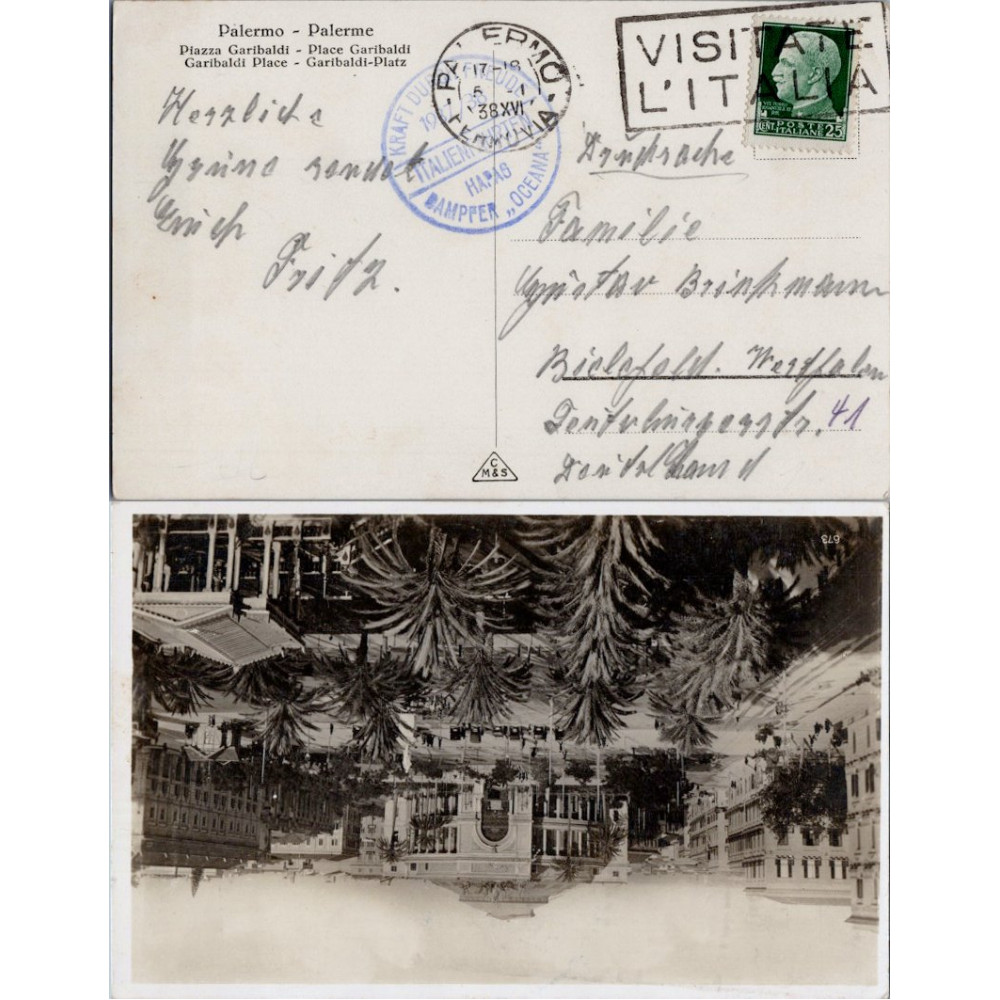 Palermo - Palerme
Piazza Garibaldi - Place Garibaldi
Garibaldi Place - Garibaldi-Platz
PALERMO
17-18
5 I
38XVI
FERROVIA
KRAFT DURCH FREUDE
1937/38
ITALIENFAHRTEN
HAPAG
DAMPFER „OCEANA“
VISITATE
L'ITALIA
POSTE
ITALIANE
CENT. 25
Herzliche
Grüße sendet
Euch
Fritz.
Drucksache
Familie
Gustav Brinkmann
Bielefeld. Westfalen
Teutoburgerstr. 41
Deutschland
C
M&S
673